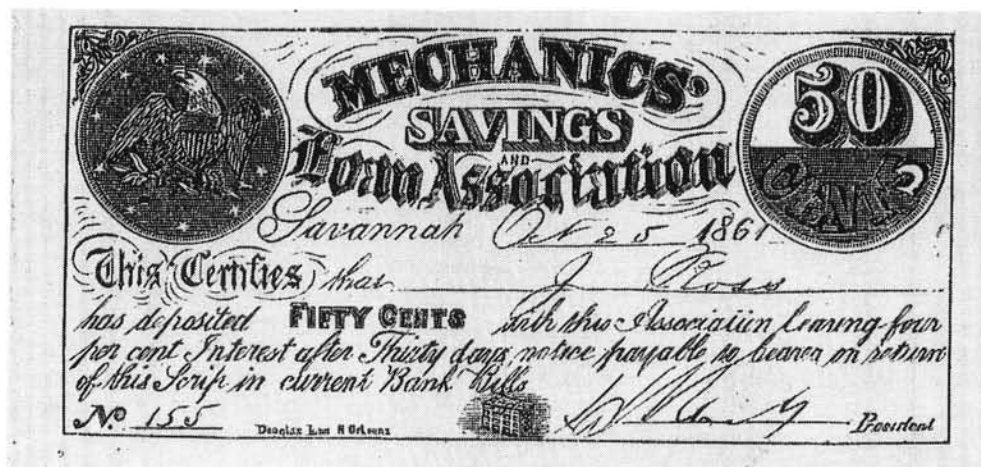 MECHANICS'
SAVINGS
AND
Loan Association
50
CENTS
Savannah Oct 25 1861
This Certifies that J Ross
has deposited FIFTY CENTS with this Association bearing four
per cent Interest after Thirty days notice payable to bearer on return
of this Scrip in current Bank Bills
No. 155
Douglas Law N Orleans
President